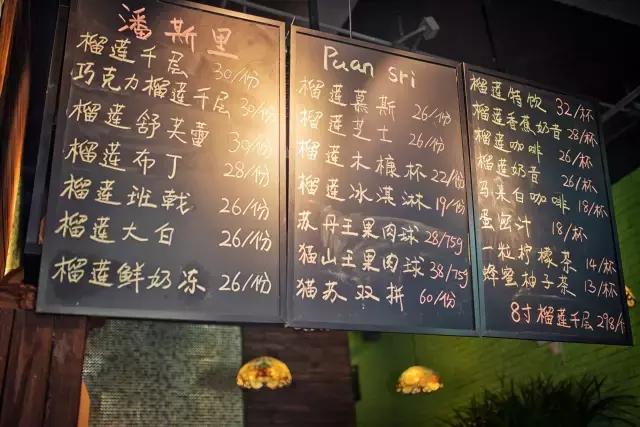 潘斯里
榴莲千层 30/份
巧克力榴莲千层 30/份
榴莲舒芙蕾 30/份
榴莲布丁 28/份
榴莲班戟 26/份
榴莲大白 26/份
榴莲鲜奶冻 26/份
Puan Sri
榴莲慕斯 26/份
榴莲芝士 26/份
榴莲木糠杯 22/份
榴莲冰淇淋 19/份
苏丹王果肉球 28/75g
猫山王果肉球 38/75g
猫苏双拼 60/份
榴莲特饮 32/杯
榴莲香蕉奶昔 28/杯
榴莲咖啡 26/杯
榴莲奶昔 26/杯
马来白咖啡 18/杯
蛋蜜汁 18/杯
一粒柠檬茶 14/杯
蜂蜜柚子茶 13/杯
8寸榴莲千层 298/